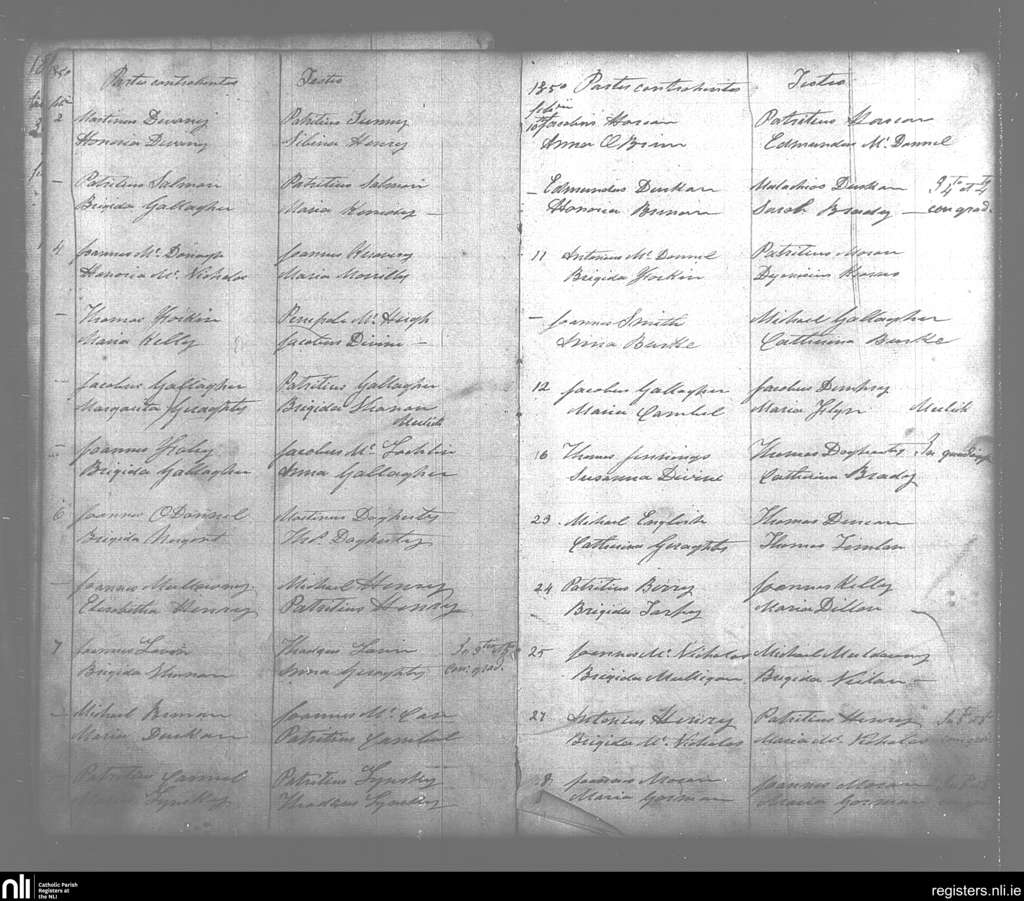 1850
Partes contrahentes Testes
2 Martinus Devany Patritius Tunney
Honoria Devany Sibina Henry
- Patritius Salmon Patritius Salmon
Brigida Gallagher Maria Kennedy -
4 Joannes Mc Donogh Joannes
Honoria Mc Nicholas Maria Morrilly
- Thomas Horkin Penepola Mc Hugh
Maria Kelly Jacobus Divine -
- Jacobus Gallagher Patritius Gallagher
Margarita Geraghty Brigida
Meelick
- Joannes Jacobus Mc Loghlin
Brigida Gallagher Anna Gallagher
6 Joannes O'Donnel Martinus Dogherty
Brigida Nugent Thos Dogherty
- Joannes Mulloway Michael Henry
Elisabetha Henry Patritius Henry
7 Joannes Lavin Thadeus Lavin
Brigida Anna Geraghty con. grad.
- Michael Brenan Joannes Mc
Maria Durkan Patritius Cambel
Patritius Cammel Patritius Lynsky
Maria Lynsky Thadeus Lynsky
1850 Partes contrahentes Testes
10 Jacobus Horan Patritius Horan
Anna O Brien Edmundus Mc Donnel
- Edmundus Durkan Malachias Durkan
Honoria Brenan Sarah Brady - con grad.
11 Antonius Mc Donnel Patritius Moran
Brigida Horkin Dyonisius
- Joannes Smith Michael Gallagher
Anna Burke Catherina Burke
12 Jacobus Gallagher Jacobus Dempsey
Maria Cambel Maria Flyn Meelick
16 Thomas Jennings Thomas Dogherty
Susanna Divine Catherina Brady
23 Michael English Thomas Duncan
Catherina Geraghty Thomas Timlin
24 Patritius Berry Joannes Kelly
Brigida Tarpey Maria Dillon
25 Joannes Mc Nicholas Michael Muldowny
Brigida Mulligan Brigida Neilan -
27 Antonius Henry Patritius Henry
Brigida Mc Nicholas Maria Mc Nicholas
Joannes Moran Joannes Moran
Maria Gorman Maria Gorman
nli Catholic Parish
Registers at
the NLI
registers.nli.ie